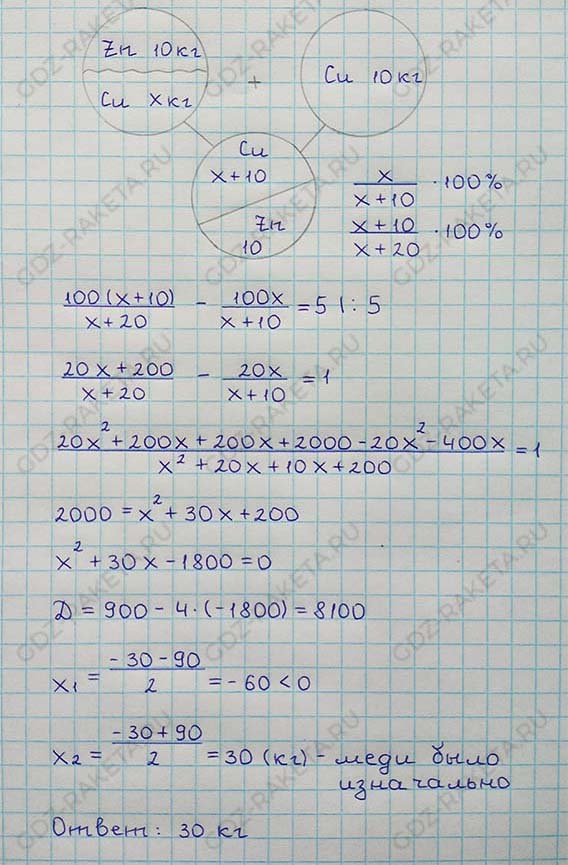 Zn 10кг
Cu xкг
+
Cu 10кг
Cu
x+10
Zn
10
x/(x+10) · 100%
(x+10)/(x+20) · 100%
100(x+10)/(x+20) - 100x/(x+10) = 5 |: 5
(20x+200)/(x+20) - 20x/(x+10) = 1
(20x²+200x+200x+2000-20x²-400x)/(x²+20x+10x+200) = 1
2000 = x²+30x+200
x²+30x-1800=0
D = 900 - 4·(-1800) = 8100
x₁ = (-30-90)/2 = -60 < 0
x₂ = (-30+90)/2 = 30 (кг) - меди было
изначально
Ответ: 30 кг
GDZ-RAKETA.RU